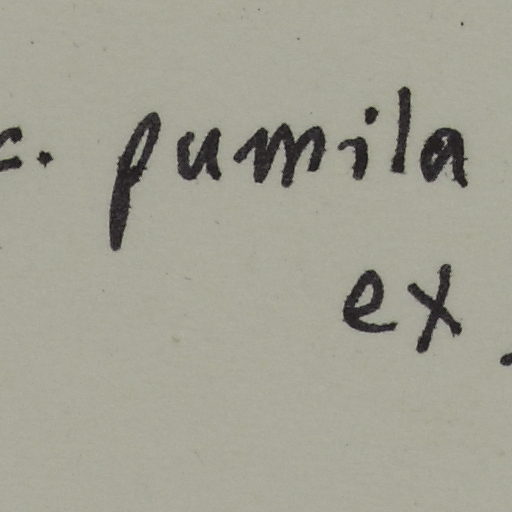 c. pumila
ex